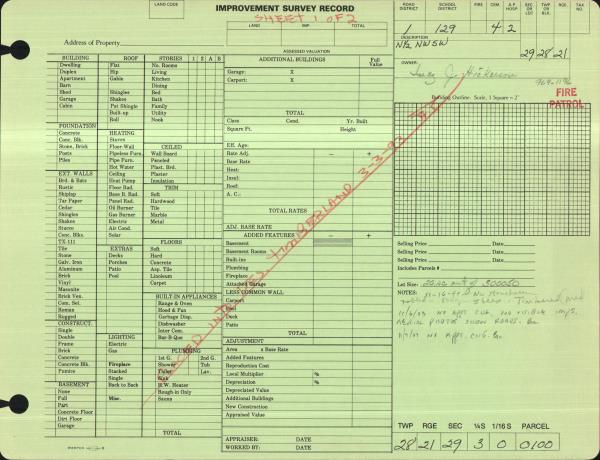 LAND CODE
IMPROVEMENT SURVEY RECORD
SHEET 1 OF 2
LAND IMP. TOTAL
ROAD DISTRICT SCHOOL DISTRICT FIRE CEM. A.P. HOSP SEC OR LOT TWP OR BLK RGE TAX NO.
1 129 4 2
DESCRIPTION
N½ NW SW
29 28 21
OWNER:
FIRE PATROL
Building Outline: Scale, 1 Square =
Address of Property
ASSESSED VALUATION
BUILDING ROOF STORIES 1 2 A B
Dwelling Flat No. Rooms
Duplex Hip Living
Apartment Gable Kitchen
Barn Dining
Shed Shingles Bed
Garage Shakes Bath
Cabin Pat Shingle Family
Built-up Utility
Roll Nook
FOUNDATION
Concrete HEATING
Conc. Blk. Stoves
Stone, Brick Floor-Wall CEILED
Posts Pipeless Furn. Wall Board
Piles Pipe Furn. Paneled
Hot Water Plast. Brd.
EXT. WALLS Ceiling Plaster
Brd. & Bats Heat Pump Insulation
Rustic Floor Rad. TRIM
Shiplap Base B. Rad. Soft
Tar Paper Panel Rad. Hardwood
Cedar Oil Burner Tile
Shingles Gas Burner Marble
Shakes Electric Metal
Stucco Air Cond.
Conc. Blks. Solar
TX-111 FLOORS
Tile EXTRAS Soft
Stone Decks Hard
Galv. Iron Porches Concrete
Aluminum Patio Asp. Tile
Brick Pool Linoleum
Vinyl Carpet
Masonite
Brick Ven. BUILT-IN APPLIANCES
Com. Sel. Range & Oven
Roman Hood & Fan
Rugged Garbage Disp.
CONSTRUCT. Dishwasher
Single Inter Com.
Double LIGHTING Bar-B-Que
Frame Electric
Brick Gas PLUMBING
Concrete 1st G. 2nd G.
Concrete Blk. Fireplace Shower Tub
Pumice Stacked Toilet Lav.
Single Sink
BASEMENT Back to Back H.W. Heater
None Rough-in Only
Full Misc. Sauna
Part
Concrete Floor
Dirt Floor
Garage
TOTAL
ADDITIONAL BUILDINGS Full Value
Garage: X
Carport: X
TOTAL
Class Cond. Yr. Built
Square Ft. Height
Eff. Age:
Rate Adj. − +
Base Rate
Heat:
Insul:
Roof:
A. C.:
TOTAL RATES
ADJ. BASE RATE
ADDED FEATURES − +
Basement
Basement Rooms
Built-ins
Plumbing
Fireplace
Attached Garage
LESS COMMON WALL
Carport
Deck
Patio
TOTAL
ADJUSTMENT
Area x Base Rate
Added Features
Reproduction Cost
Local Multiplier %
Depreciation %
Depreciated Value
Additional Buildings
New Construction
Appraised Value
APPRAISER: DATE
WORKED BY: DATE
TIMBERLAND 3-3-93
Selling Price Date
Selling Price Date
Selling Price Date
Includes Parcels #
Lot Size:
NOTES:
TWP RGE SEC ¼S 1/16 S PARCEL
28 21 29 3 0 0100